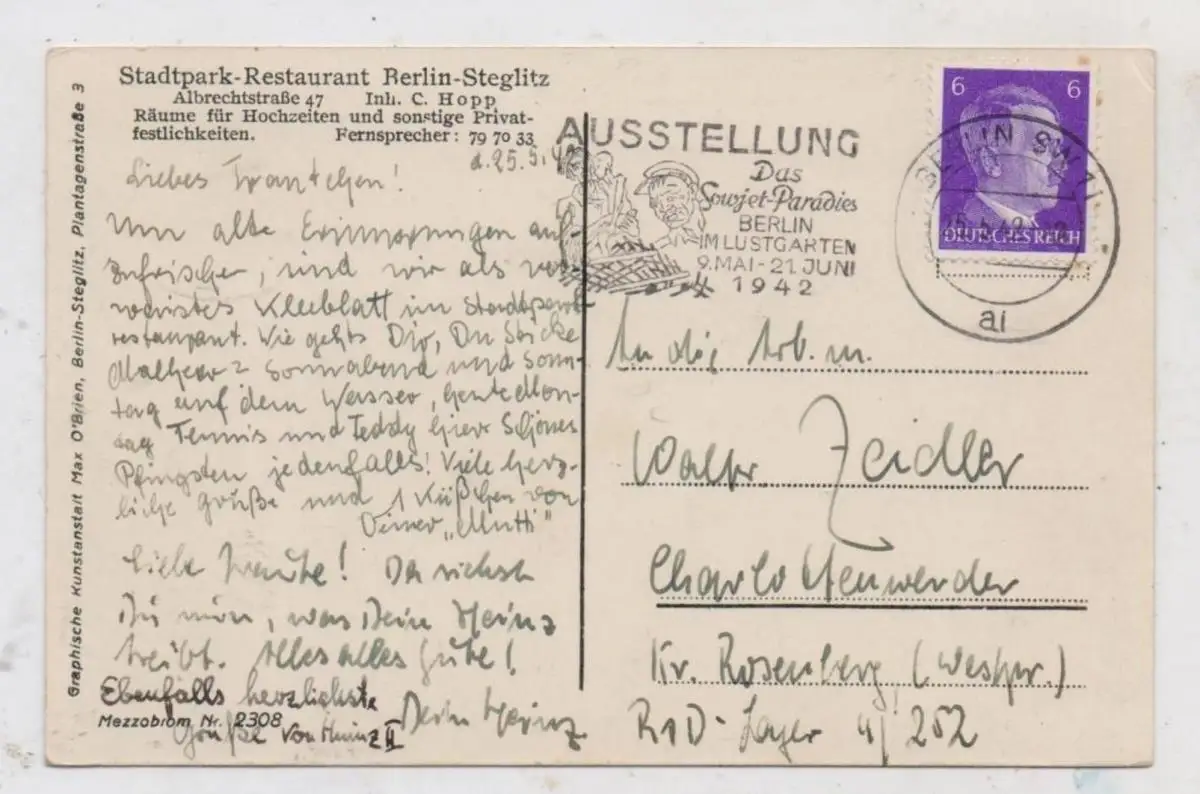 Stadtpark-Restaurant Berlin-Steglitz
Albrechtstraße 47 Inh. C. Hopp
Räume für Hochzeiten und sonstige Privat-
festlichkeiten. Fernsprecher: 79 70 33
d. 25.5.42
Liebes Trautchen!
Um alte Erinnerungen auf-
zufrischen, sind wir als ver-
waistes Kleeblatt im Stadtpark
restaurant. Wie gehts Dir, Du
Sonnabend und Sonn-
tag auf dem Wasser, heute Mon-
tag Tennis und Teddy hier. Schönes
Pfingsten jedenfalls! Viele herz-
liche Grüße und 1 Küßchen von
Deiner „Mutti"
Liebe Traute! Da siehst
Du nun, was Dein Heinz
treibt. Alles alles Gute!
Dein Heinz
Ebenfalls herzlichste
Grüße von Heinz II
Mezzobrom Nr. 2308
Graphische Kunstanstalt Max O'Brien, Berlin-Steglitz, Plantagenstraße 3
AUSSTELLUNG
Das
Sowjet-Paradies
BERLIN
IM LUSTGARTEN
9. MAI - 21. JUNI
1942
6 6
DEUTSCHES REICH
BERLIN SW 11
ai
An die Arb. m.
Zeidler
Charlottenwerder
Kr. Rosenberg (Westpr.)
RAD-Lager 4/252